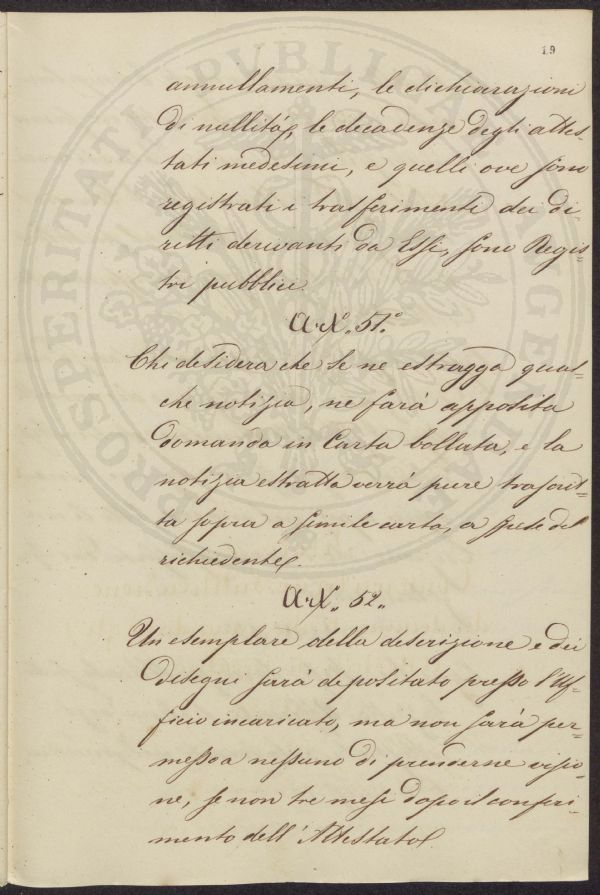 19
annullamenti, le dichiarazioni
di nullità, le decadenze degli attes-
tati medesimi, e quelli ove sono
registrati i trasferimenti dei di-
ritti derivanti da Essi, sono Regis-
tri pubblici.
Art.° 51.°
Chi desidera che se ne estragga qual-
che notizia, ne farà apposita
domanda in Carta bollata, e la
notizia estratta verrà pure trascrit-
ta sopra a simile carta, a spese del
richiedente.
Art.° 52.
Un esemplare della descrizione e dei
disegni sarà depositato presso l'Uf-
ficio incaricato, ma non sarà per-
messo a nessuno di prenderne visio-
ne, se non tre mesi dopo il conferi-
mento dell'Attestato.
PROSPERITATI PUBLICAE AUGENDAE